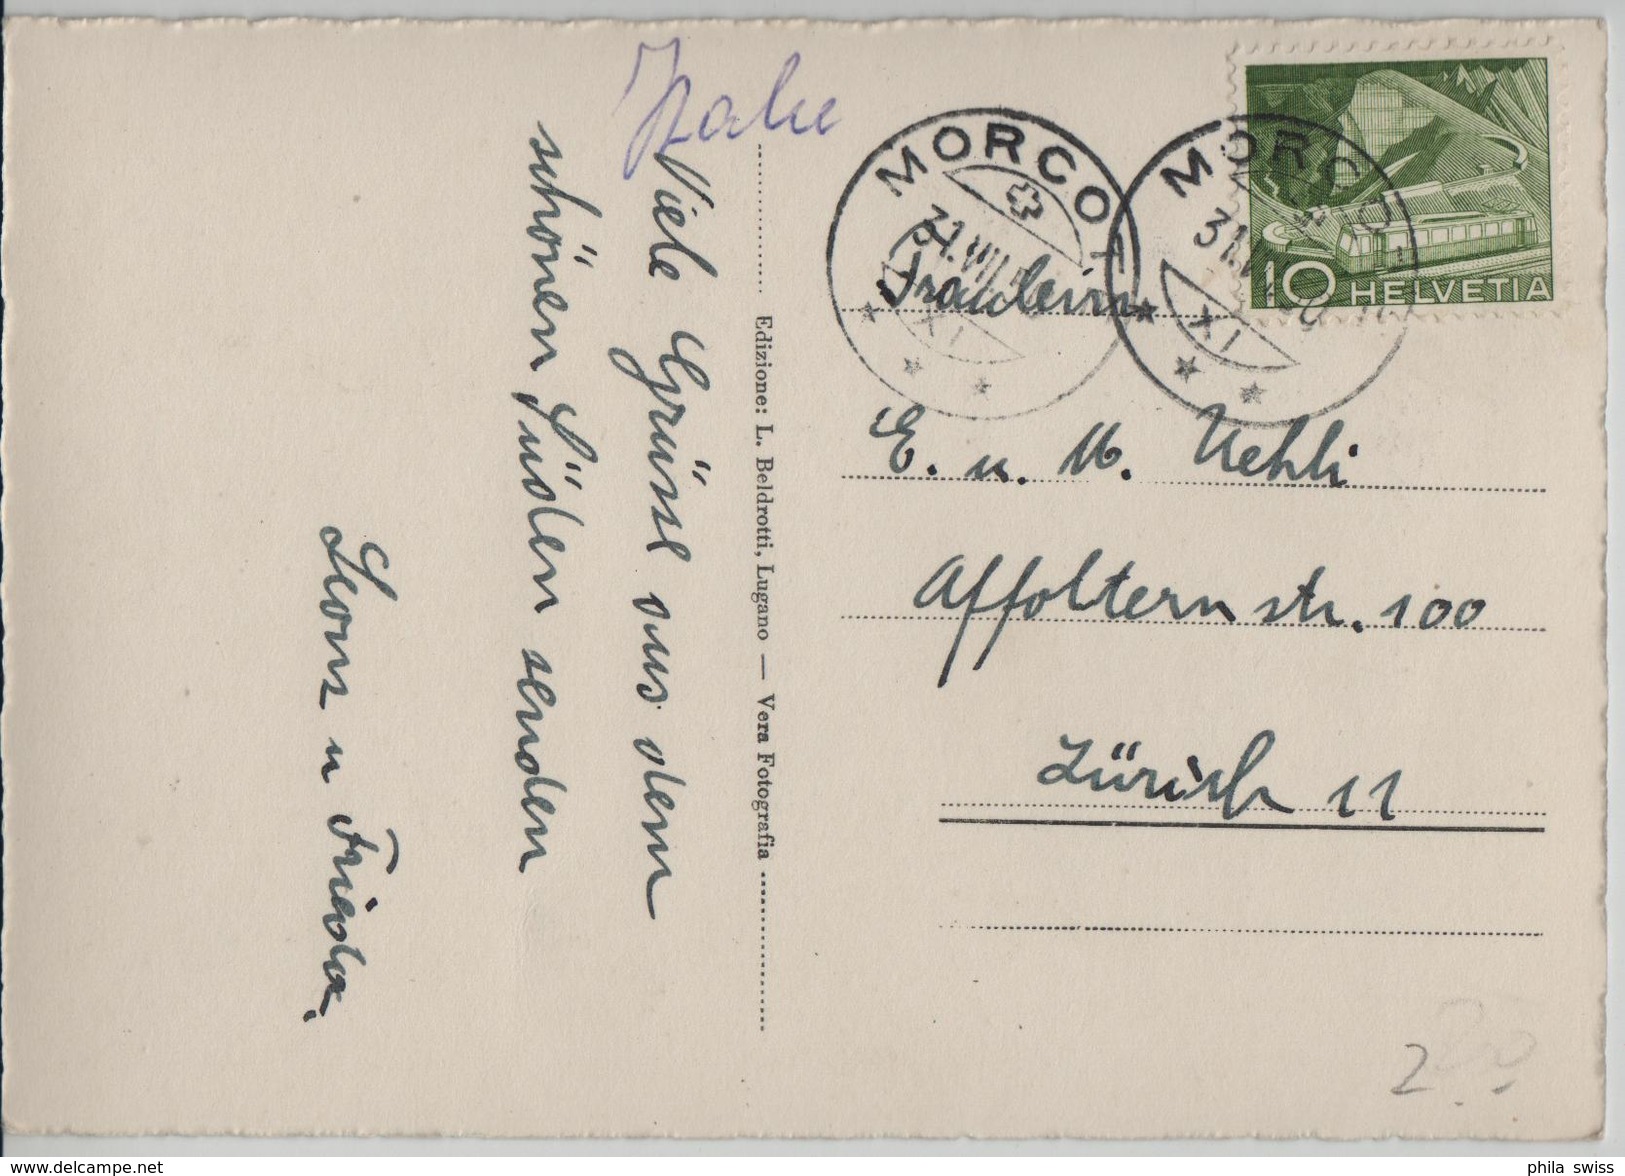 Italie
Viele Grüsse aus dem
schönen Süden senden
Leonz u Frieda.
Edizione: L. Beldrotti, Lugano — Vera Fotografia
MORCOTE
31.VII
XI
MORCOTE
31.VII
XI
10 HELVETIA
Fraulein
E. u. M. Uehli
Affolternstr. 100
Zürich 11
phila swiss